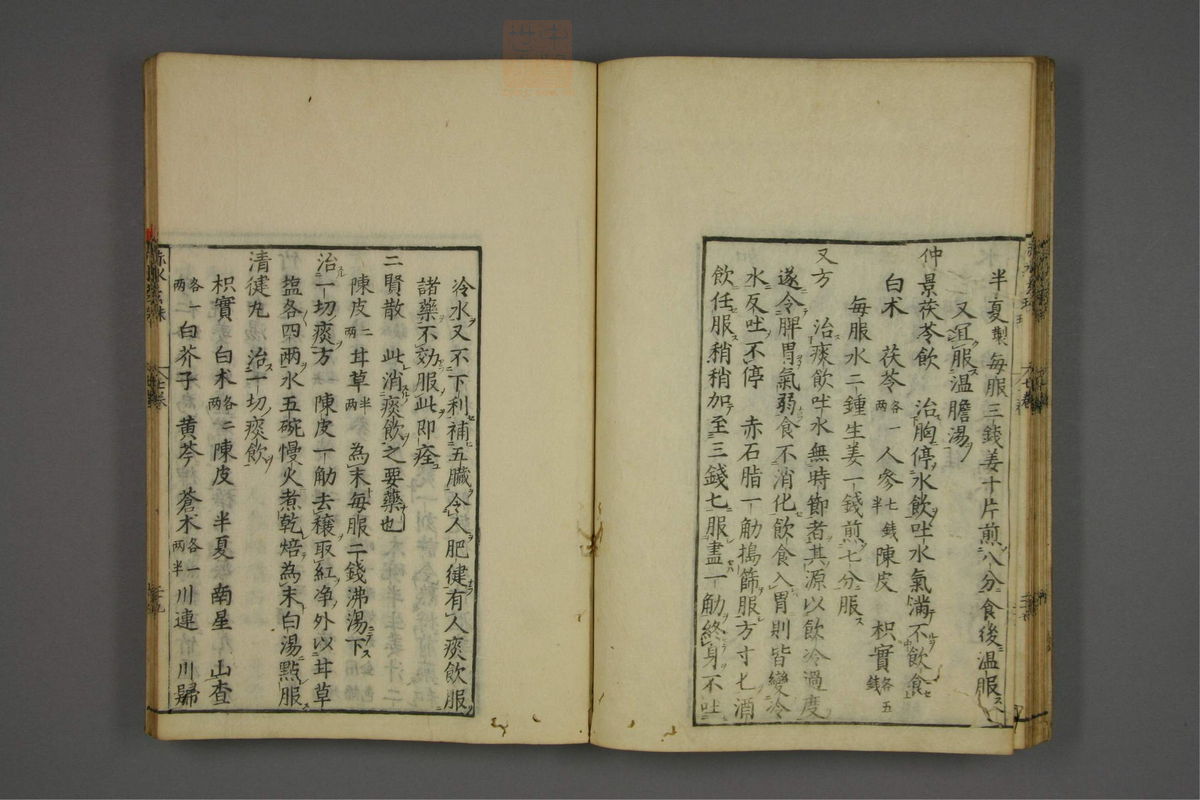 半夏製每服三錢姜十片煎八分食後温服
又冝服温膽湯
仲景茯苓飲　治胸停水飲吐水氣滿不飲食
白术　茯苓各一两　人參七錢半　陳皮　枳實各五錢
每服水二鍾生姜一錢煎七分服
又方　治痰飲吐水無時節者其源以飲冷過度
遂令脾胃氣弱食不消化飲食入胃則皆變冷
水反吐不停　赤石脂一觔搗篩服方寸七酒
飲任服稍稍加至三錢七服盡一觔終身不吐
冷水又不下利補五臓令人肥徤有人痰飲服
諸藥不効服此即痊
二賢散　此消痰飲之要藥也
陳皮二两　甘草半两　為末每服二錢沸湯下
治一切痰方　陳皮一觔去穰取紅净外以甘草
塩各四两水五碗慢火煮乾焙為末白湯點服
清徤丸　治一切痰飲
枳實　白术各二两　陳皮　半夏　南星　山查
各一两　白芥子　黄芩　蒼术各一两半　川連　川歸